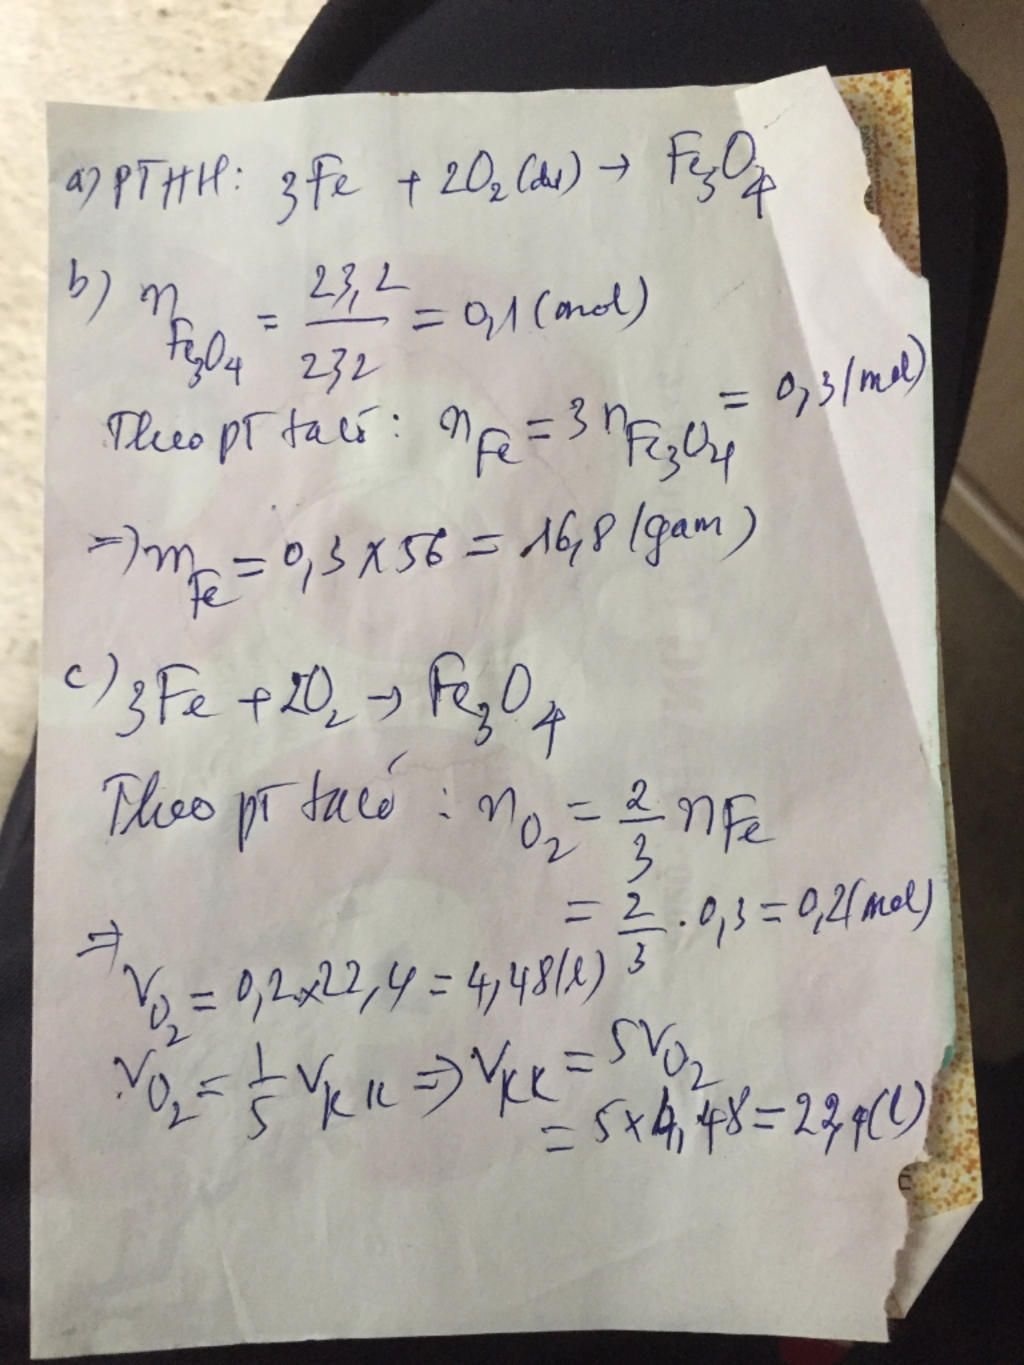 a) PTHH: 3Fe + 2O₂ (dư) → Fe₃O₄
b) n Fe₃O₄ = 23,2 / 232 = 0,1 (mol)
Theo pT ta có: n Fe = 3 n Fe₃O₄ = 0,3 (mol)
=> m Fe = 0,3 x 56 = 16,8 (gam)
c) 3Fe + 2O₂ → Fe₃O₄
Theo pT ta có: n O₂ = 2/3 n Fe
= 2/3 . 0,3 = 0,2 (mol)
=> V O₂ = 0,2 x 22,4 = 4,48 (l)
V O₂ = 1/5 V KK => V KK = 5 V O₂
= 5 x 4,48 = 22,4 (l)